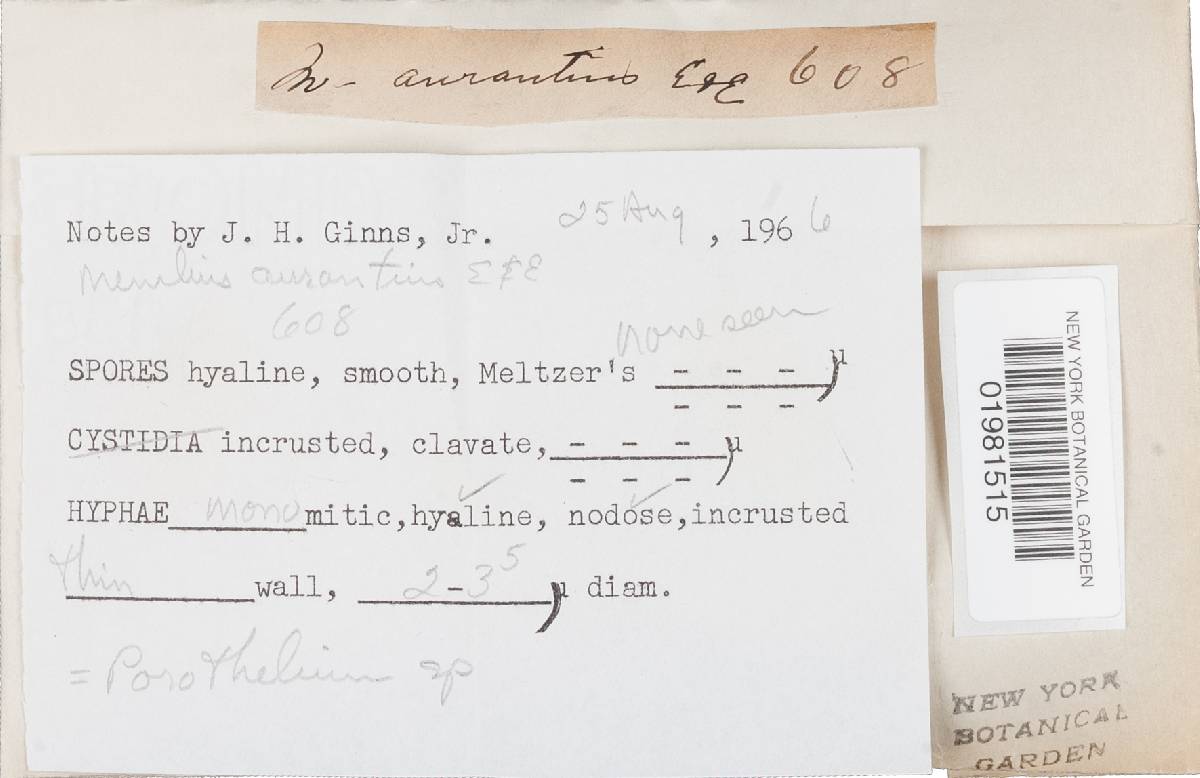 M- aurantius E&E 608
Notes by J. H. Ginns, Jr. 25 Aug, 1966
Merulius aurantius E & E
608
none seen
SPORES hyaline, smooth, Meltzer's _ - - - µ
- - -
CYSTIDIA incrusted, clavate, - - - µ
- - -
HYPHAE monomitic, hyaline, nodose, incrusted
thin wall, 2-3⁵ µ diam.
= Porothelium sp
NEW YORK BOTANICAL GARDEN
01981515
NEW YORK
BOTANICAL
GARDEN